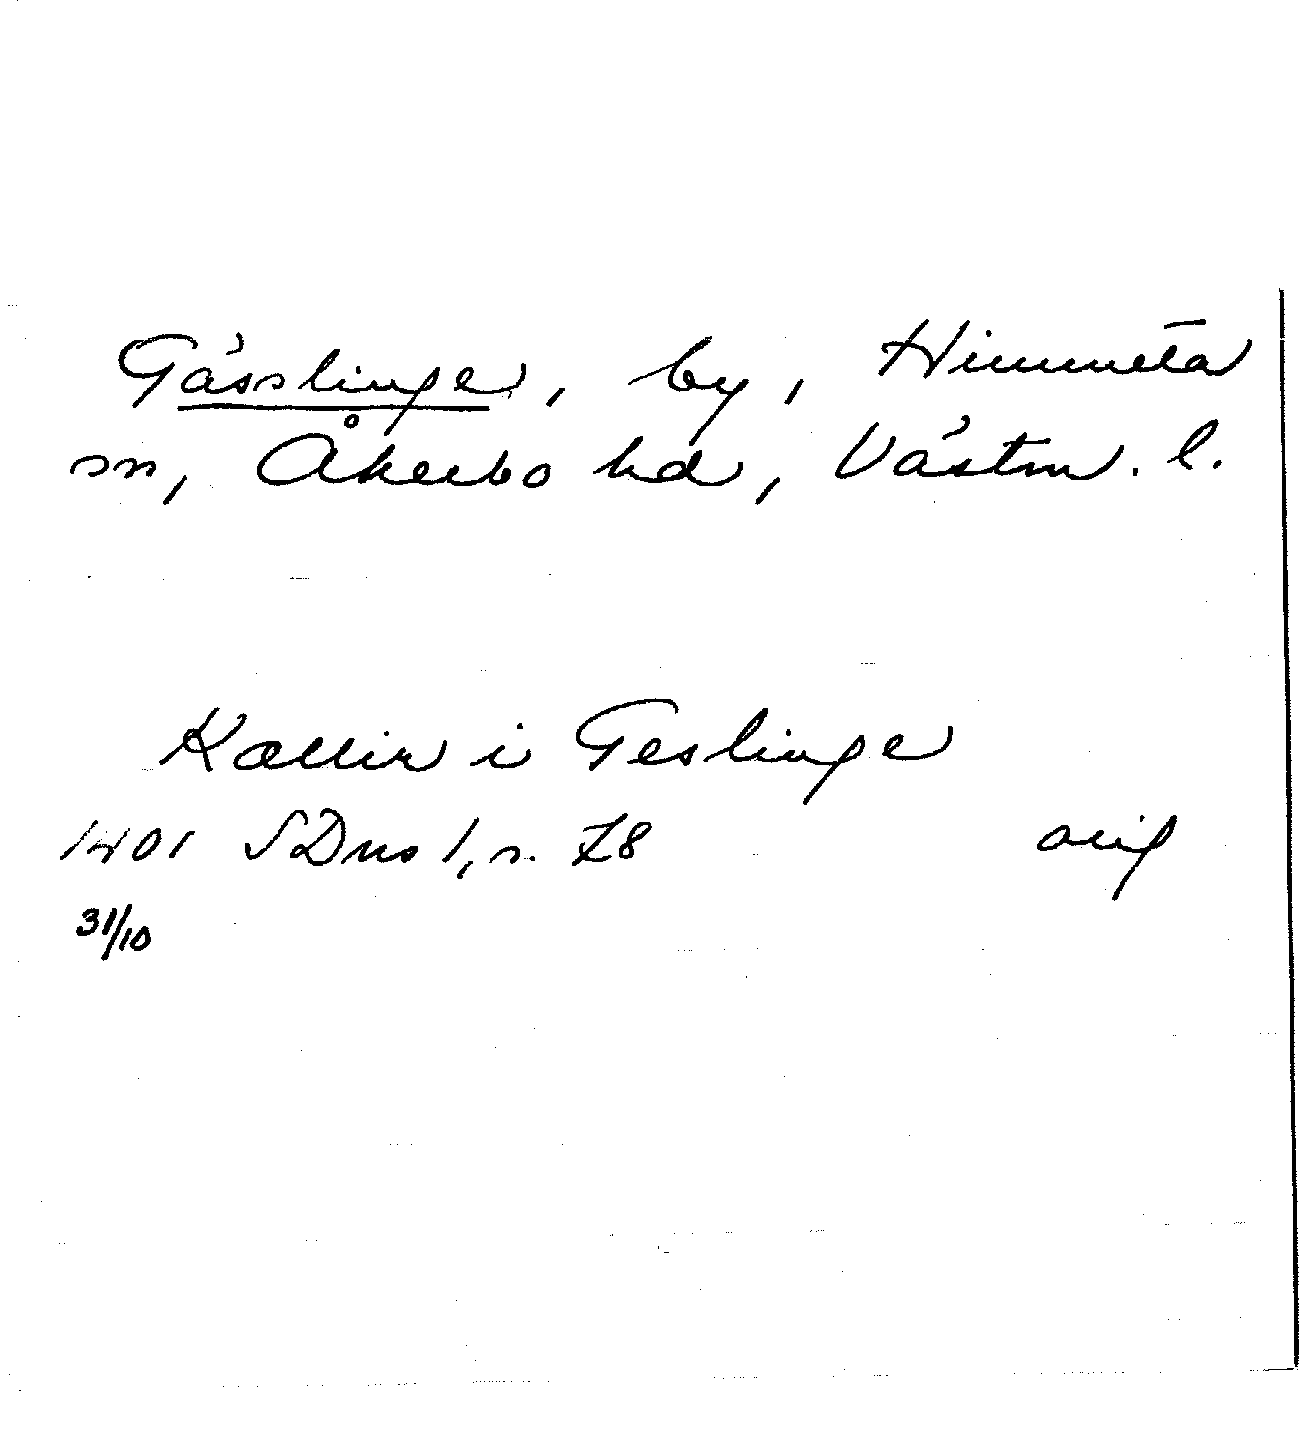 Gässlinge, by, Himmeta
sn, Åkerbo hd, Västm. l.
Kællir i Geslinge
1401 SDns 1, s. 78 orig
31/10